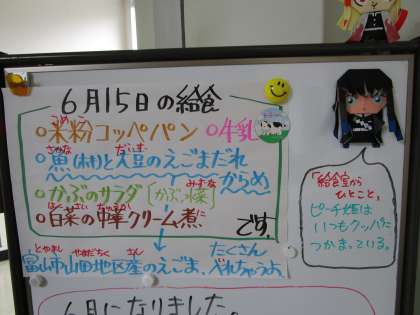 6月15日の給食
○米粉コッペパン ○牛乳
こめこ
○魚(ホキ)と大豆のえごまだれ
さかな だいず
からめ
○かぶのサラダ[かぶ、水菜]
みずな
○白菜の中華クリーム煮
はくさい ちゅうか に
です。
とやまし やまだちく さん
富山市山田地区産のえごま、
たくさん
べれちゃうよ
「給食室から
ひとこと」
ピーチ姫は
いつもクッパに
つかまっている。
6月になりました。